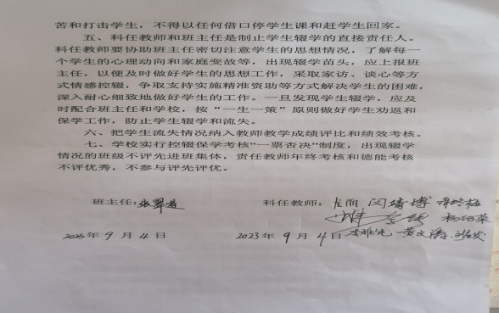 苦和打击学生，不得以任何借口停学生课和赶学生回家。
五、科任教师和班主任是制止学生辍学的直接责任人。
科任教师要协助班主任密切注意学生的思想情况，了解每一
个学生的心理动向和家庭变故等，出现辍学苗头，应上报班
主任，以便及时做好学生的思想工作，采取家访、谈心等方
式情感控辍，争取支持实施精准资助等方式解决学生的困难，
深入耐心细致地做好学生的工作。一旦发现学生辍学，应及
时配合班主任和学校，按“一生一策”原则做好学生劝返和
保学工作，防止学生辍学和流失。
六、把学生流失情况纳入教师教学成绩评比和绩效考核。
七、学校实行控辍保学考核“一票否决”制度，出现辍学
情况的班级不评先进班集体，责任教师年终考核和德能考核
不评优秀，不参与评先评优。
班主任： 科任教师：
2023年9月4日 2023年9月4日